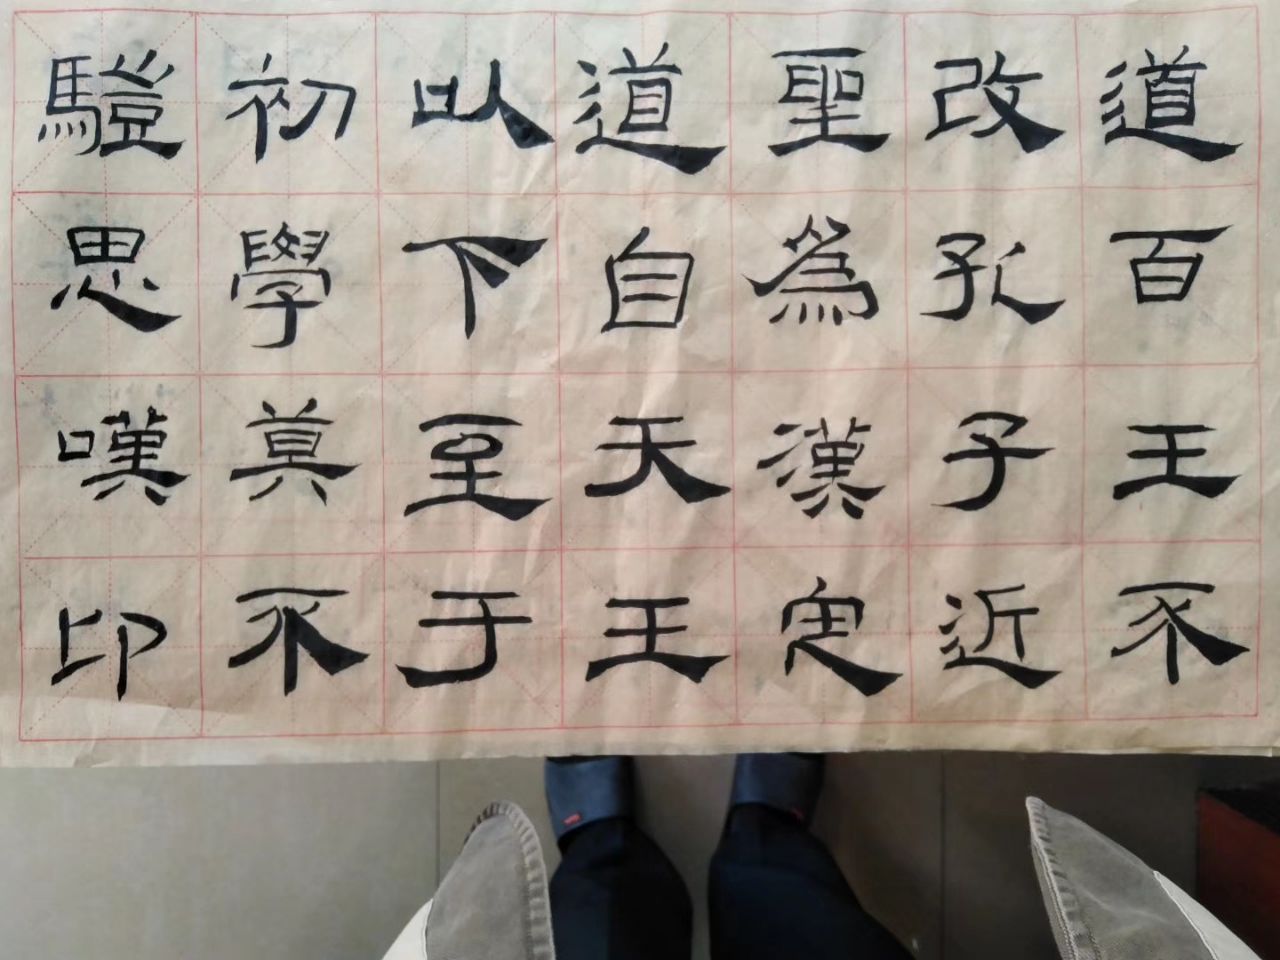 道百王不
改孔子近
聖爲漢定
道自天王
以下至于
初學莫不
驥思嘆卬